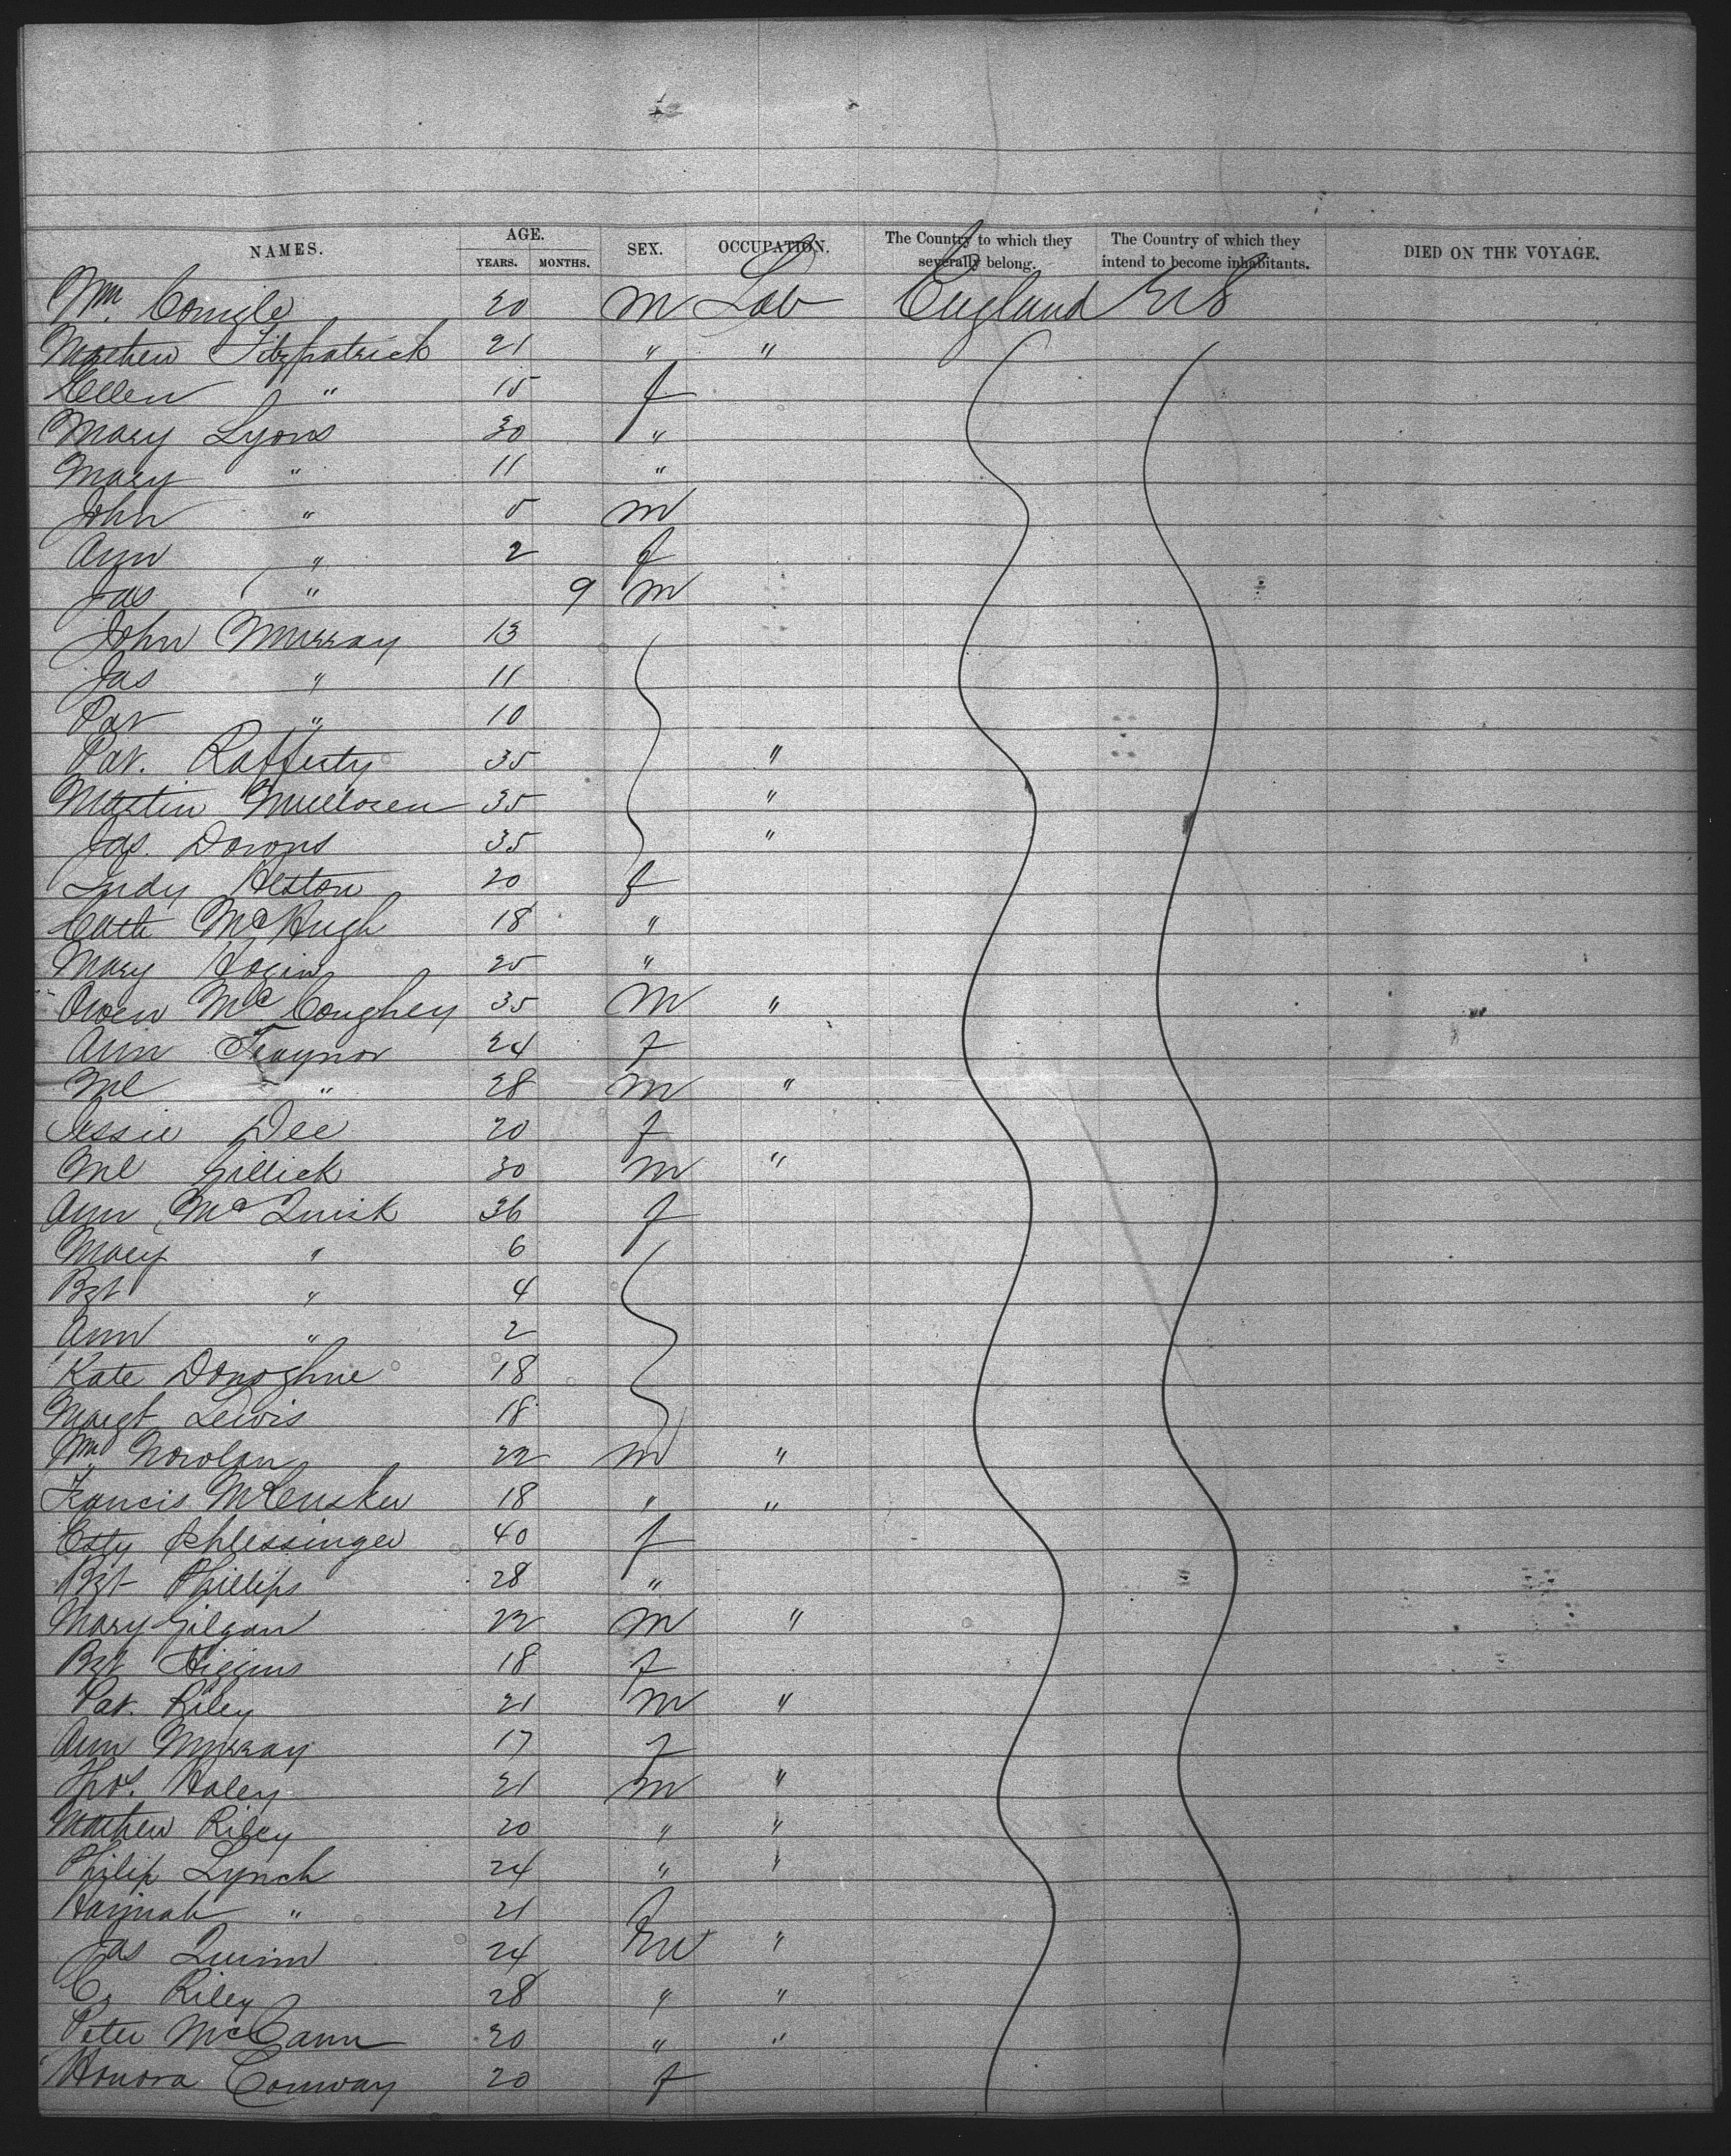 NAMES. AGE. SEX. OCCUPATION. The Country to which they severally belong. The Country of which they intend to become inhabitants. DIED ON THE VOYAGE.
YEARS. MONTHS.
Wm. 20 M Lab England US
Mathew Fitzpatrick 21 " "
Ellen " 15 f
Mary Lyons 30 "
Mary " 11 "
John " 5 m
Ann " 2 f
Jas " 9 m
John Murray 13
Jas " 11
Pat " 10
Pat. Rafferty 35 "
Martin 35 "
Jas. Downs 35 "
Judy 20 f
Cath McHugh 18 "
Mary 25 "
Owen McConghey 35 M "
Ann Traynor 24 f
Ml " 28 m "
Jessie Dee 20 f
Ml Gillick 30 m "
Ann McQuirk 36 f
Mary " 6
Bgt " 4
Ann " 2
Kate Donoghue 18
Margt Lewis 18
Wm Nowlan 22 m "
Francis McCusker 18 " "
Esty Schlessinger 40 f
Bgt Phillips 28 "
Mary Gilgan 22 m "
Bgt Higgins 18 f
Pat. Riley 21 m "
Ann Murray 17 f
Thos. Haley 21 m "
Mathew Riley 20 " "
Philip Lynch 24 " "
Hannah " 21 f
Jas Quinn 24 m "
Riley 28 " "
Peter McCann 20 " "
Honora Conway 20 f